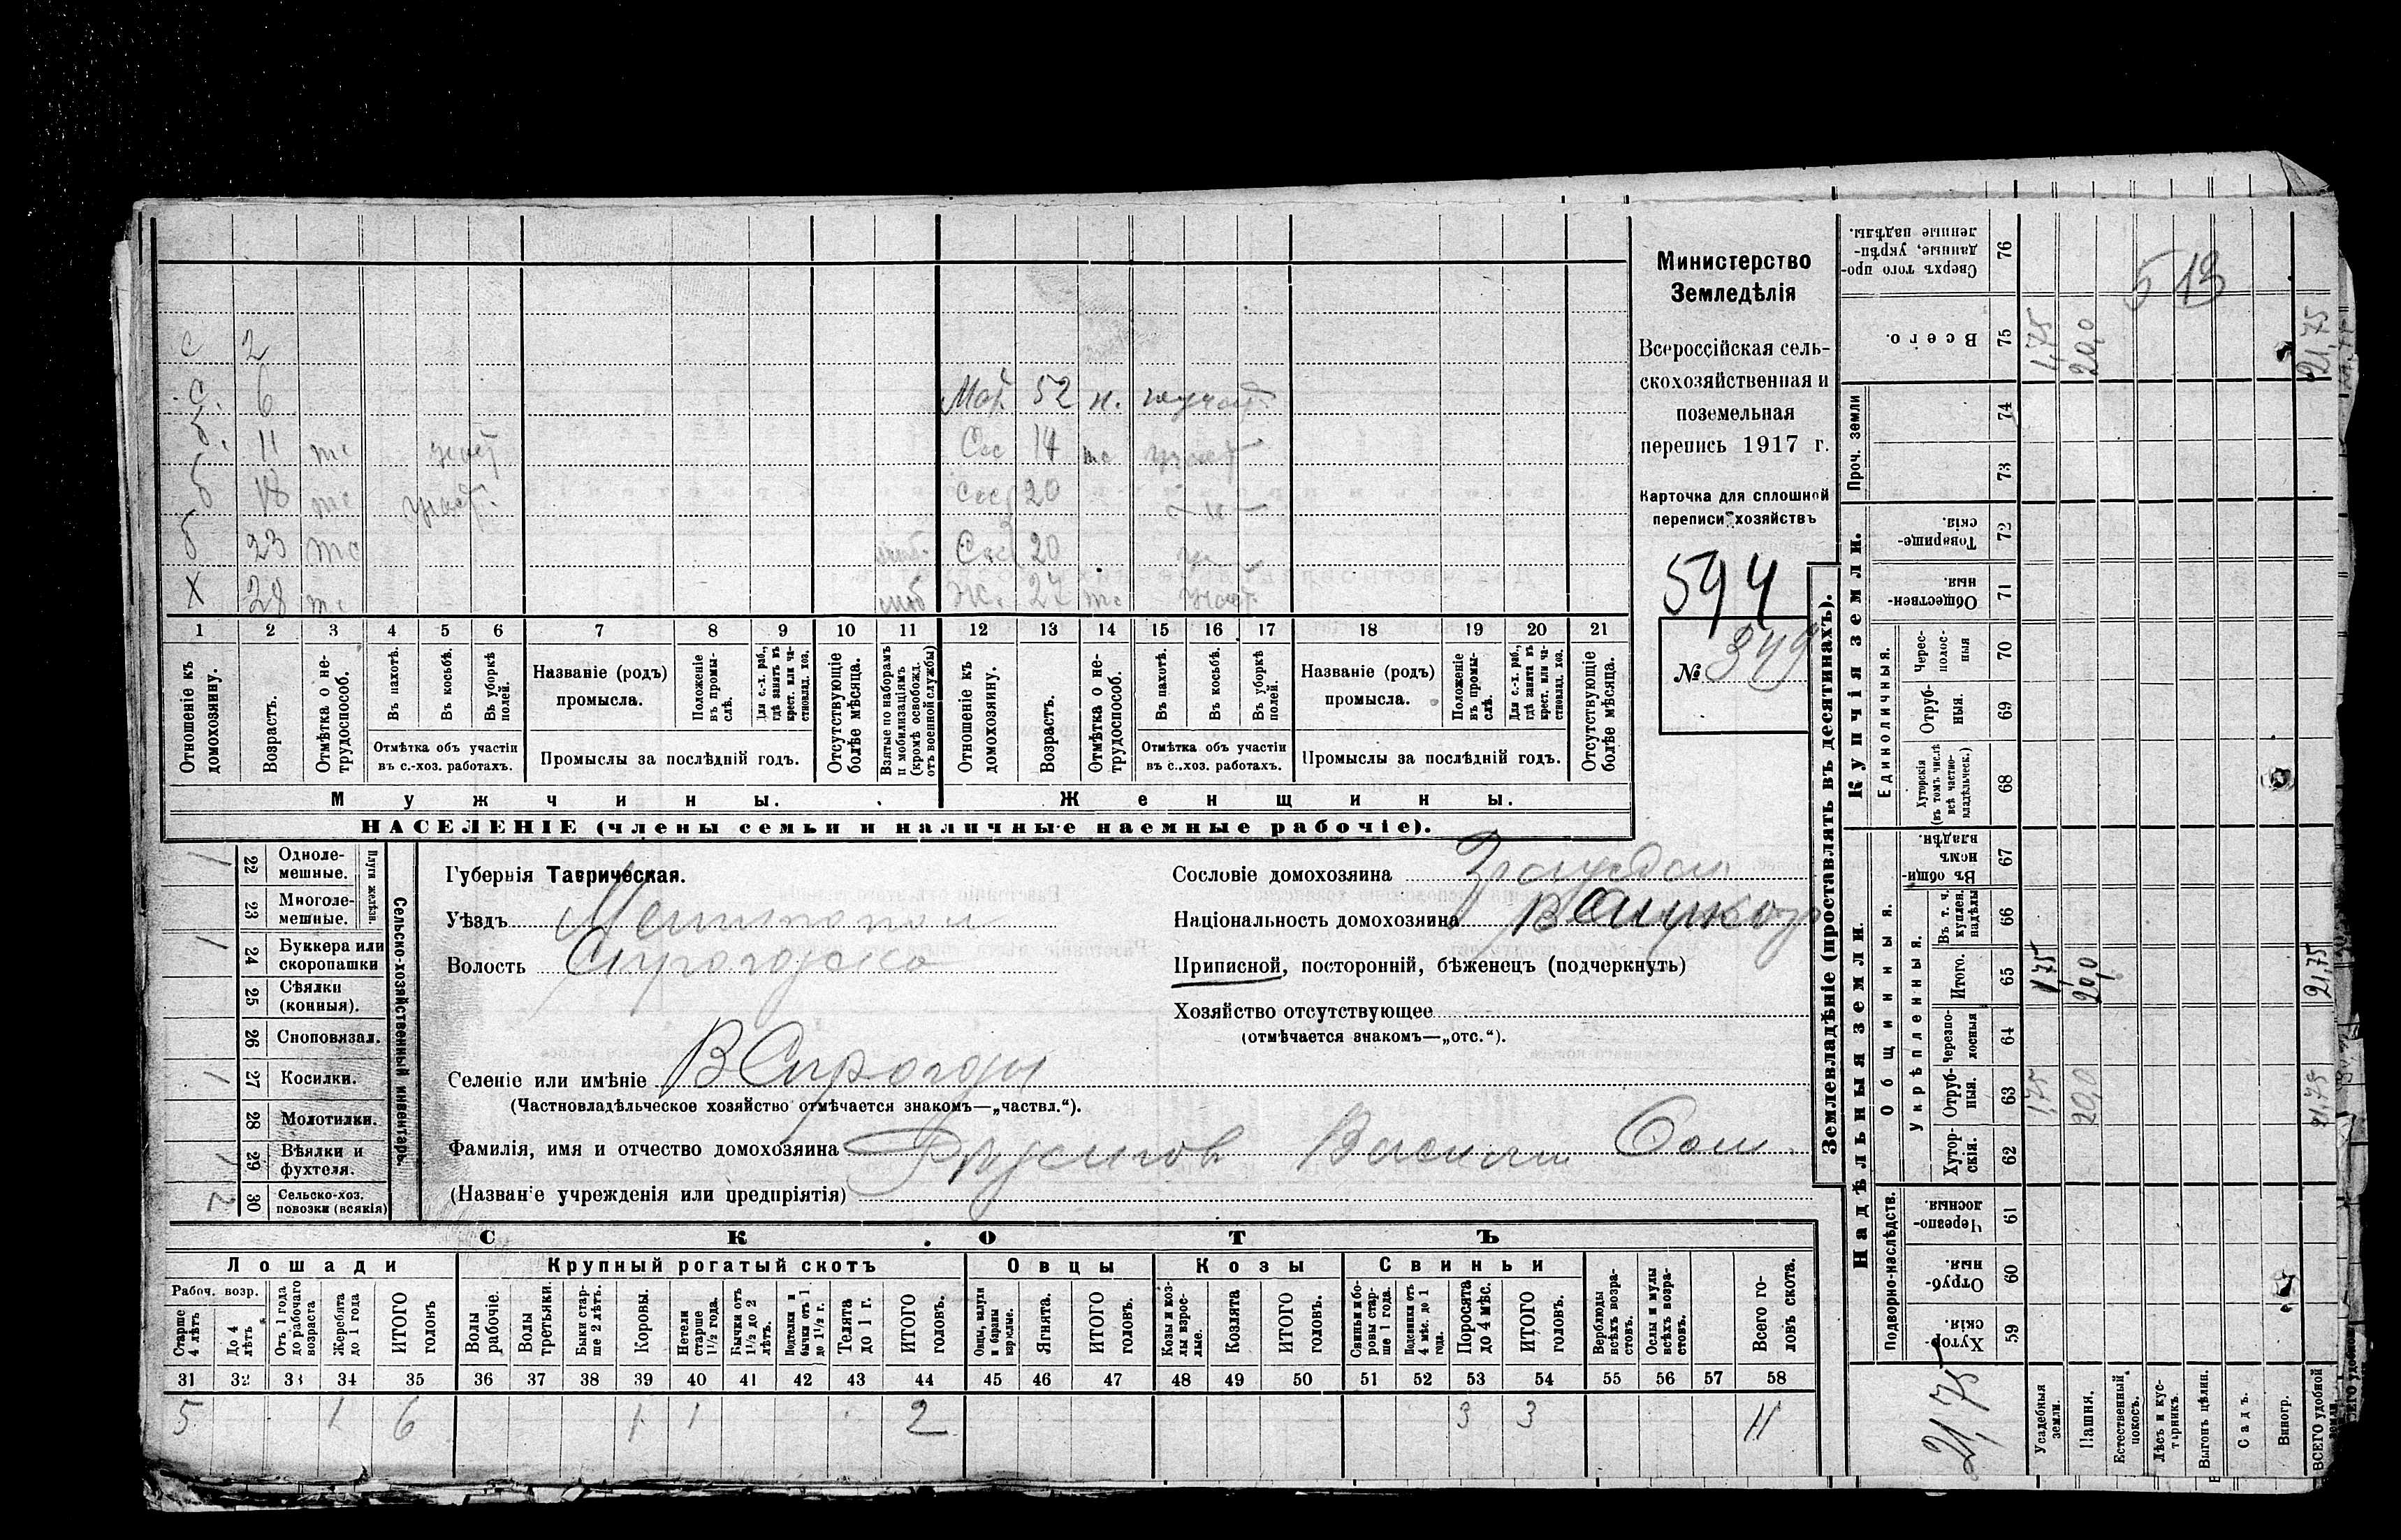 с 2
с. 6 Мат. 52 н.
б. 11 Сес 14
б 18 Сес 20
б 23 Сес 20
Х 28 Ж. 27
1 2 3 4 5 6 7 8 9 10 11 12 13 14 15 16 17 18 19 20 21
Отношеніе къ домохозяину.
Возрастъ.
Отмѣтка о нетрудоспособ.
Въ пахотѣ.
Въ косьбѣ.
Въ уборкѣ полей.
Отмѣтка объ участіи
въ с.-хоз. работахъ.
Названіе (родъ)
промысла.
Положеніе въ промыслѣ.
Для с.-х. раб., гдѣ занятъ въ крест. или частновлад. хоз.
Промыслы за послѣдній годъ.
Отсутствующіе болѣе мѣсяца.
Взятые по наборамъ и мобилизаціямъ (кромѣ освобожд. отъ военной службы)
Отношеніе къ домохозяину.
Возрастъ.
Отмѣтка о нетрудоспособ.
Въ пахотѣ.
Въ косьбѣ.
Въ уборкѣ полей.
Отмѣтка объ участіи
въ с..хоз. работахъ.
Названіе (родъ)
промысла.
Положеніе въ промыслѣ.
Для с.-х. раб., гдѣ занятъ въ крест. или частновлад. хоз.
Промыслы за послѣдній годъ.
Отсутствующіе болѣе мѣсяца.
Мужчины. Женщины.
НАСЕЛЕНІЕ (члены семьи и наличные наемные рабочіе).
Министерство
Земледѣлія
Всероссійская сель-
скохозяйственная и
поземельная
перепись 1917 г.
Карточка для сплошной
переписи хозяйствъ
594
№ 349
Плуги желѣзн.
1 22 Одноле-
мешные.
23 Многоле-
мешные.
1 24 Буккера или
скоропашки
25 Сѣялки
(конныя).
26 Сноповязал.
1 27 Косилки.
28 Молотилки.
1 29 Вѣялки и
фухтеля.
2 30 Сельско-хоз.
повозки (всякія)
Сельско-хозяйственный инвентарь.
Губернія Таврическая.
Уѣздъ Мелитопол
Волость
Селеніе или имѣніе В Сирогозы
(Частновладѣльческое хозяйство отмѣчается знакомъ—„частвл.“).
Фамилія, имя и отчество домохозяина
(Назван'е учрежденія или предпріятія)
Сословіе домохозяина
Національность домохозяина
Приписной, посторонній, бѣженецъ (подчеркнуть)
Хозяйство отсутствующее
(отмѣчается знакомъ—„отс.“).
СКОТЪ
Лошади Крупный рогатый скотъ Овцы Козы Свиньи
Рабоч. возр.
Старше 4 лѣтъ
До 4 лѣтъ
Отъ 1 года до рабочаго возраста
Жеребята до 1 года
ИТОГО головъ
Волы рабочіе.
Волы третьяки.
Быки старше 2 лѣтъ.
Коровы.
Нетели старше 1½ года.
Бычки отъ 1½ до 2 лѣтъ.
Подтелки и бычки отъ 1 до 1½ г.
Телята до 1 г.
ИТОГО головъ.
Овцы, валухи и бараны взрослые.
Ягнята.
ИТОГО головъ.
Козы и козлы взрослые.
Козлята
ИТОГО головъ.
Свиньи и боровы старше 1 года.
Подсвинки отъ 4 мѣс. до 1 года.
Поросята до 4 мѣс.
ИТОГО головъ.
Верблюды всѣхъ возрастовъ.
Ослы и мулы всѣхъ возрастовъ.
Всего головъ скота.
31 32 33 34 35 36 37 38 39 40 41 42 43 44 45 46 47 48 49 50 51 52 53 54 55 56 57 58
5 1 6 1 1 2 3 3 11
Землевладѣніе (проставлять въ десятинахъ).
Надѣльныя земли. Купчія земли. Проч. земли
Подворно-наслѣдств.
Общинныя.
Укрѣпленныя.
Единоличныя.
Хуторскія 59
Отрубныя 60
Черезполосныя. 61
Хуторскія. 62
Отрубныя. 63 1,75 20,0 21,75
Черезполосныя 64
Итого. 65 1,75 20,0 21,75
Въ т. ч. куплен. надѣлы 66
Въ общинномъ владѣн. 67
Хуторскія (въ томъ числѣ всѣ частновладѣльческ.) 68
Отрубныя. 69
Чересполосныя 70
Общественныя 71
Товарищескія. 72
73
74
Всего. 75 1,75 20,0 21,75
Сверхъ того проданные, укрѣпленные надѣлы. 76
513
21,75
Усадебныя земли.
Пашня.
Естественный покосъ.
Лѣсъ и кустарникъ.
Выгонъ цѣлин.
Садъ.
Виногр.
ВСЕГО удобной земли.